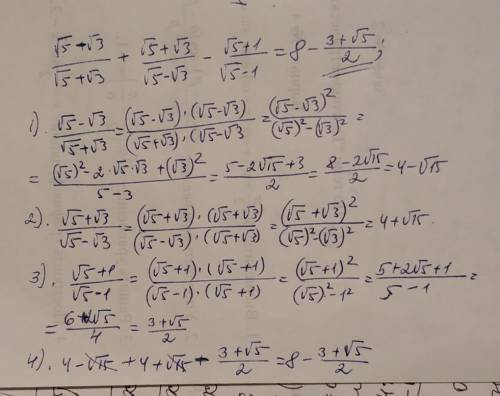 (√5-√3)/(√5+√3) + (√5+√3)/(√5-√3) - (√5+1)/(√5-1) = 8 - (3+√5)/2;
1). (√5-√3)/(√5+√3) = ((√5-√3)·(√5-√3))/((√5+√3)·(√5-√3) = (√5-√3)²/((√5)²-(√3)²) =
= ((√5)²-2·√5·√3+(√3)²)/(5-3) = (5-2√15+3)/2 = (8-2√15)/2 = 4-√15
2). (√5+√3)/(√5-√3) = ((√5+√3)·(√5+√3))/((√5-√3)·(√5+√3)) = (√5+√3)²/((√5)²-(√3)²) = 4+√15.
3). (√5+1)/(√5-1) = ((√5+1)·(√5+1))/((√5-1)·(√5+1)) = (√5+1)²/((√5)²-1²) = (5+2√5+1)/(5-1) =
= (6+2√5)/4 = (3+√5)/2
4). 4-√15+4+√15-(3+√5)/2 = 8-(3+√5)/2